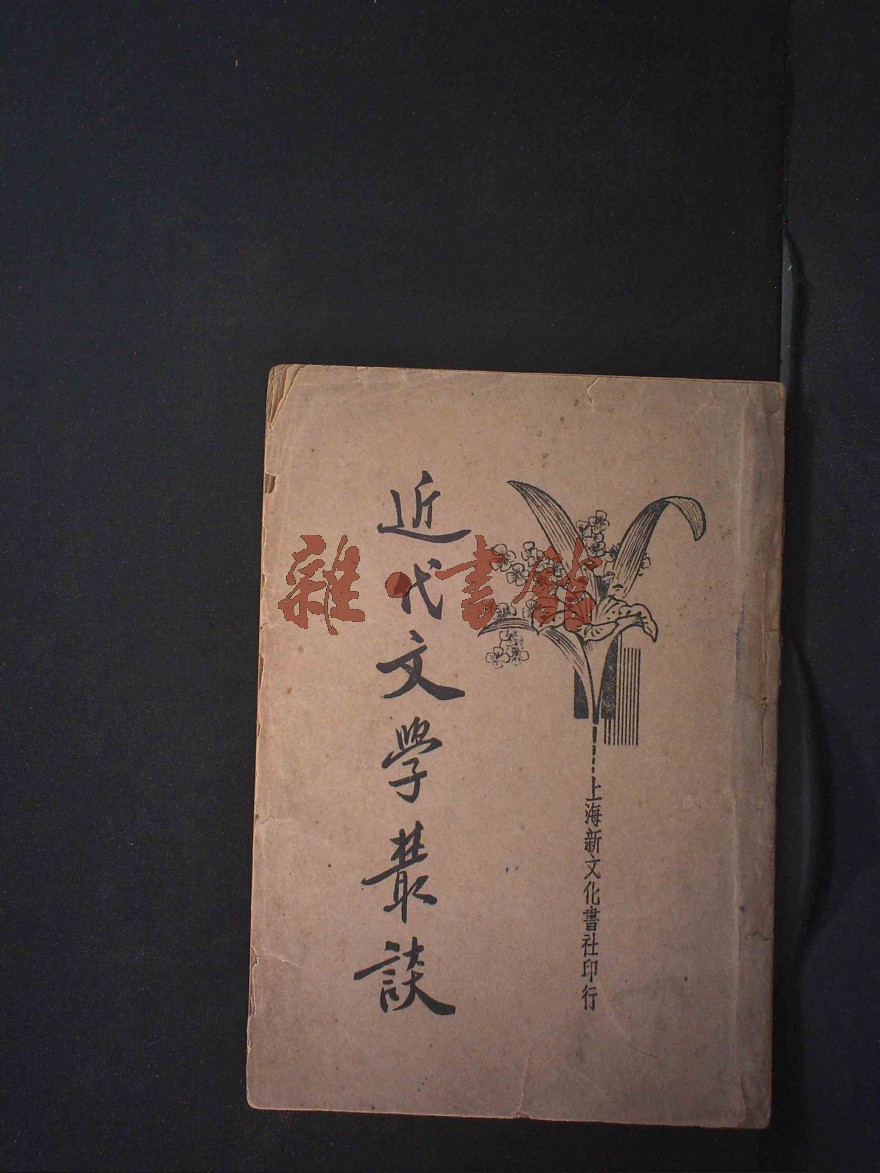 上海新文化書社印行
近代文學叢談
雜·書館